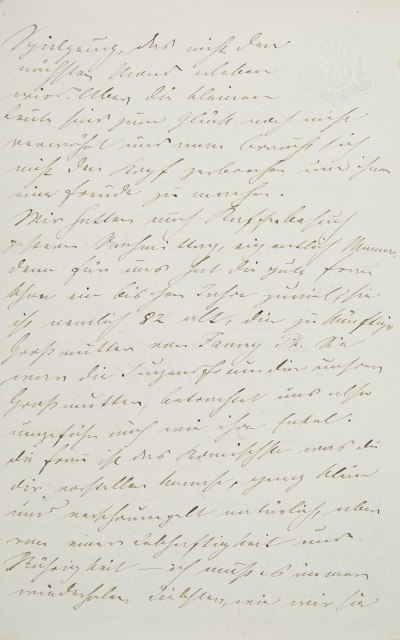 Spielzeug, das nicht den
nächsten Abend erleben
wird. Aber die kleinen
Leute sind zum Glück noch nicht
verwöhnt und man braucht sich
nicht den Kopf zerbrechen um ihnen
eine Freude zu machen.
Wir hatten auch Kaffeebesuch
gestern Nachmittag, eigentlich Mama,
denn für uns hat die gute Frau
schon ein bischen Jahre zuviel, sie
ist nemlich 82 alt, die zukünftige
Großmutter von Fanny Sie
war die Jugendfreundin unserer
Großmutter, betrachtet uns also
ungefähr auch wie ihre Enkel:
die Frau ist das Komischste was du
dir vorstellen kannst, ganz klein
und verschrumpelt natürlich, aber
von einer Lebhaftigkeit und
Rührigkeit — ich muß es immer
wiederholen, Liebster, wie wir sie